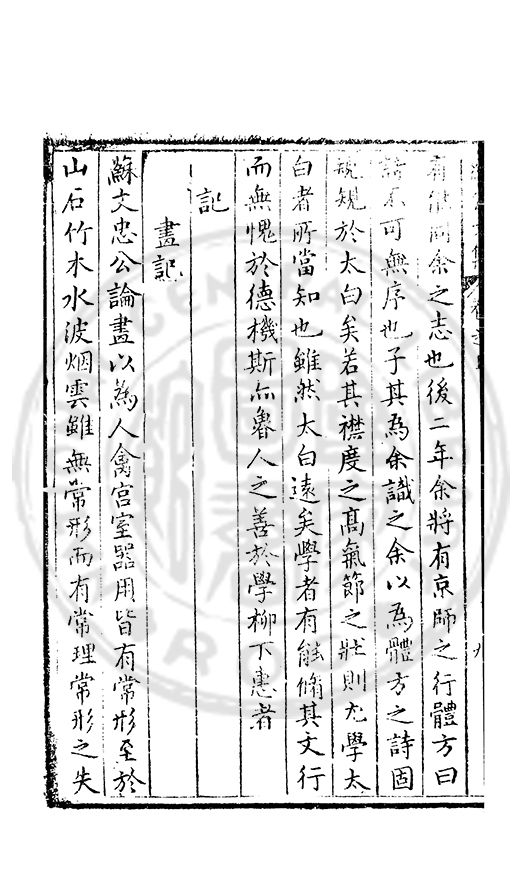 有能同余之志也後二年余將有京師之行體方曰
詩不可無序也子其為余識之余以為體方之詩固
規規於太白矣若其襟度之高氣節之壯則尤學太
白者所當知也雖然太白遠矣學者有能脩其文行
而無愧於德機斯亦魯人之善於學柳下惠者
記
畫記
蘇文忠公論畫以為人禽宮室器用皆有常形至於
山石竹木水波烟雲雖無常形而有常理常形之失